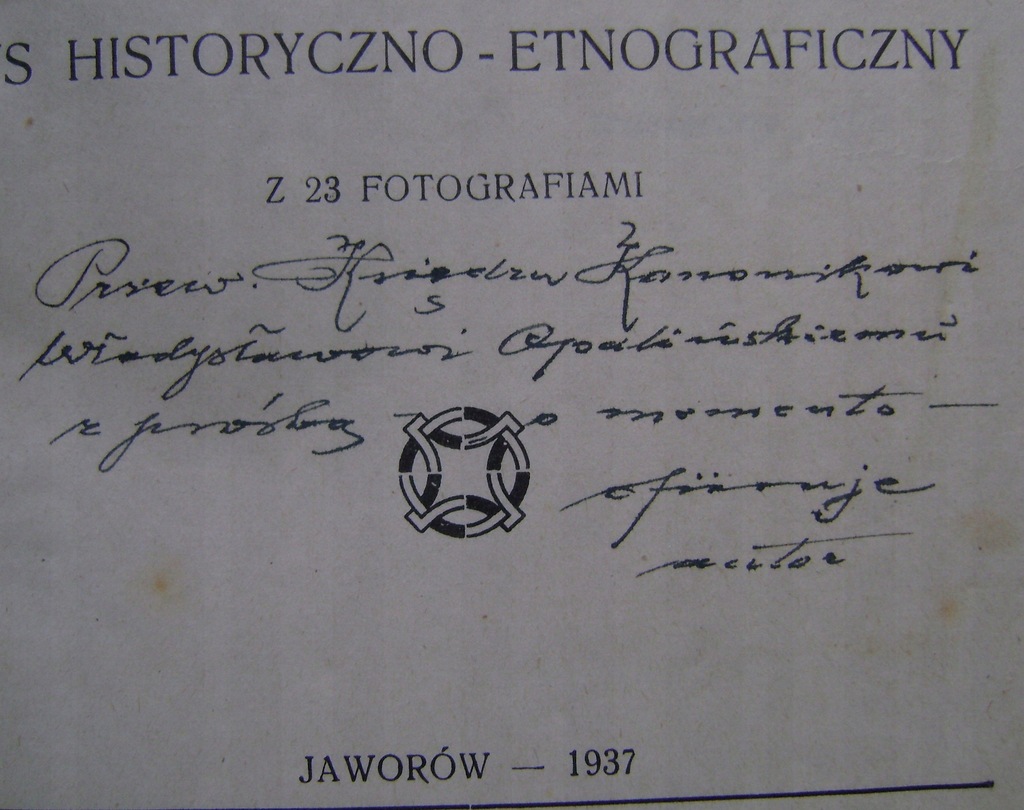 S HISTORYCZNO - ETNOGRAFICZNY
Z 23 FOTOGRAFIAMI
Przew. Księdzu Kanonikowi
Władysławowi Opalińskiemu
z prośbą o memento —
ofiaruje
autor
JAWORÓW — 1937